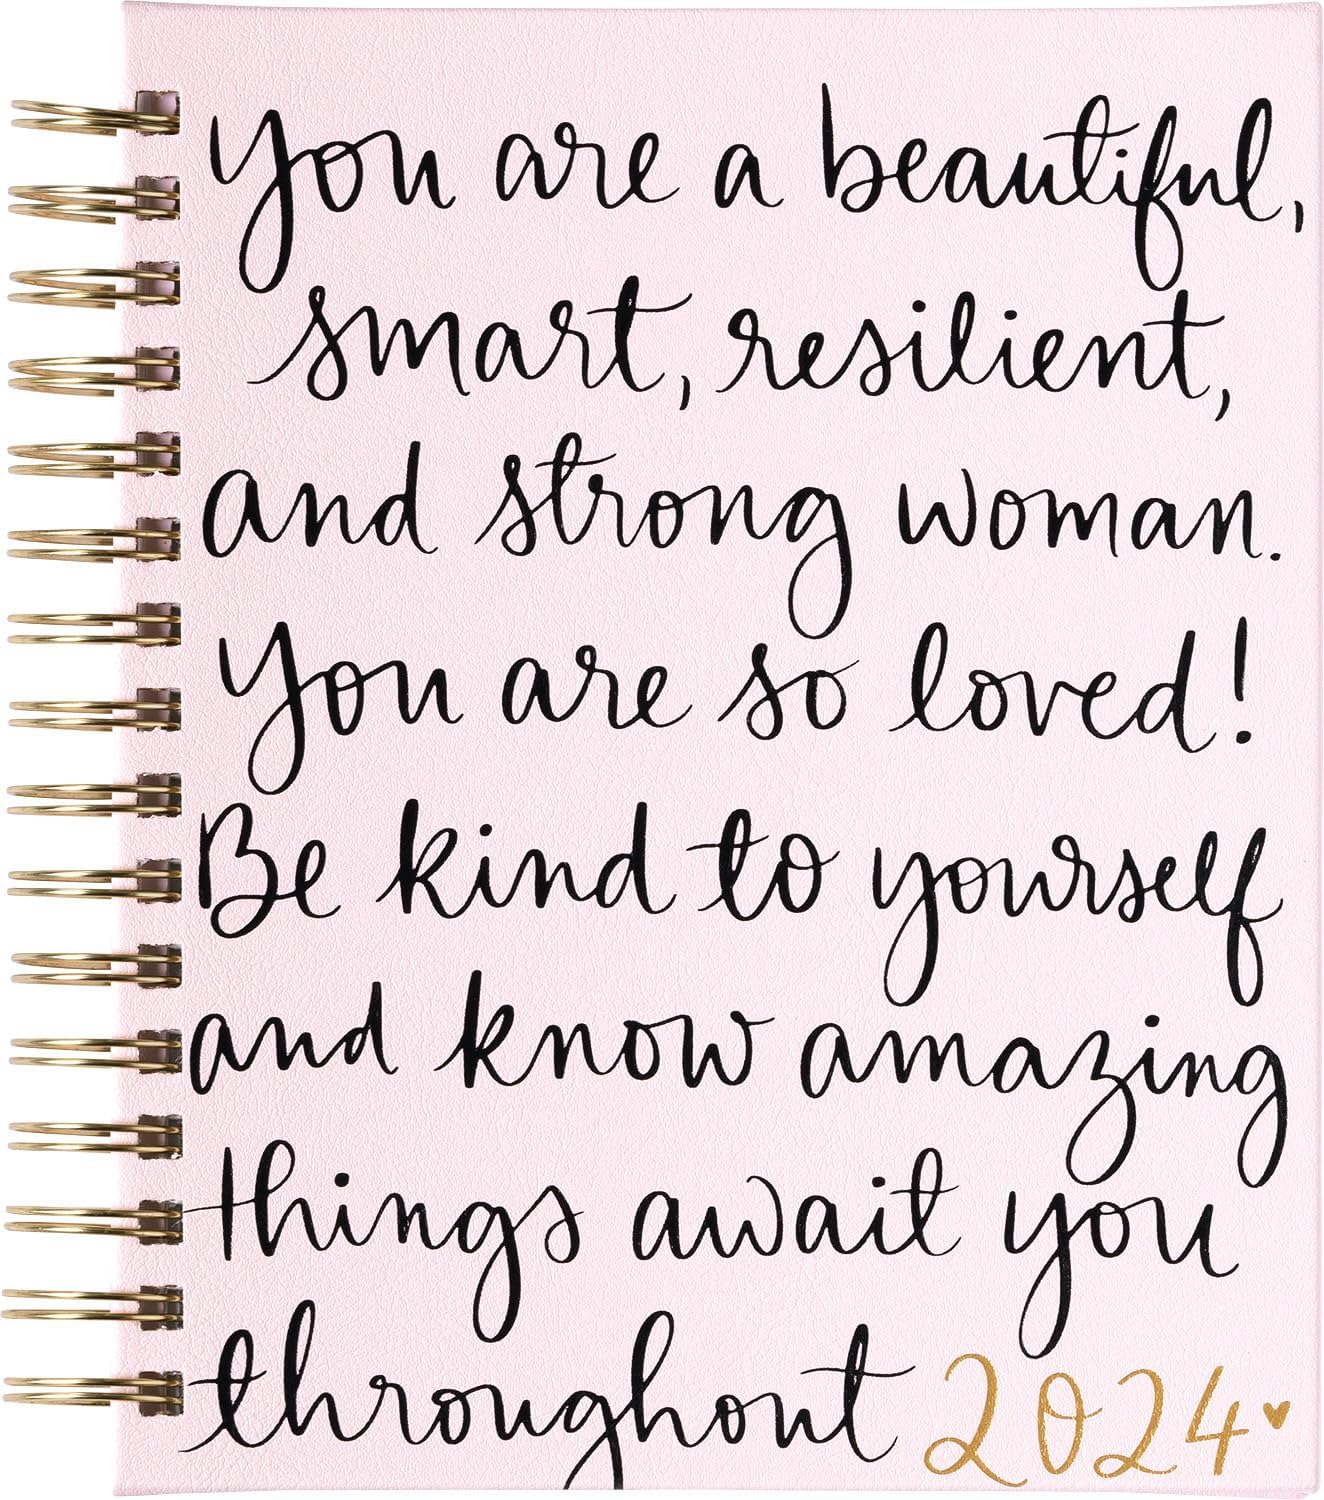 you are a beautiful,
smart, resilient,
and strong woman.
You are so loved!
Be kind to yourself
and know amazing
things await you
throughout 2024